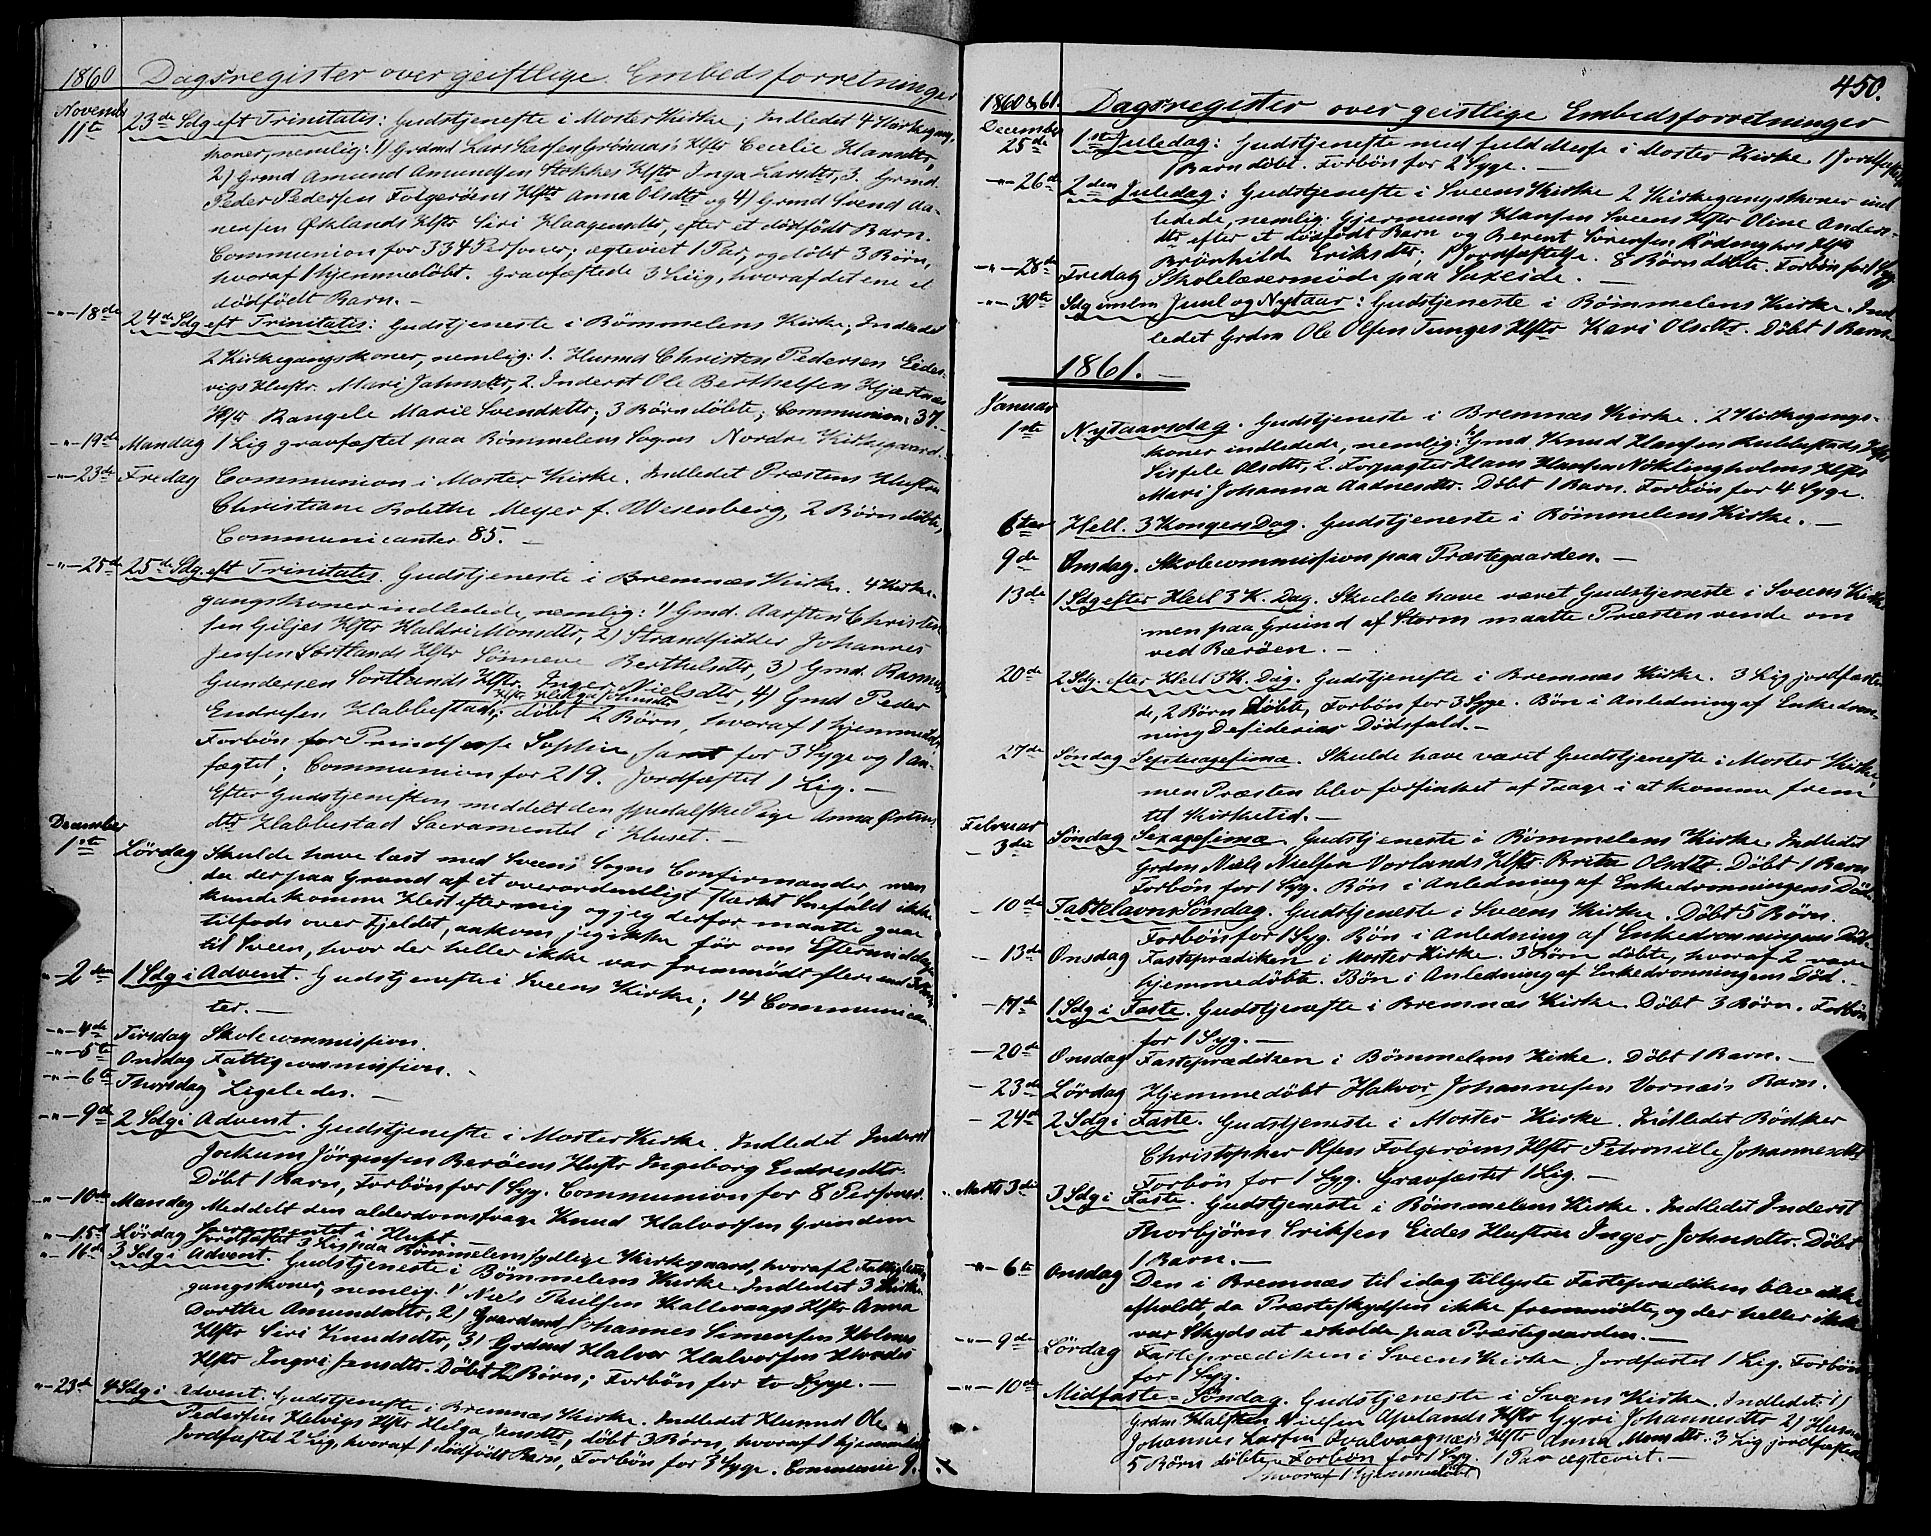 1860 Dagsregister over geistlige Embedsforretninger
November
11te 23de Sdg eft Trinitatis: Gudstjeneste i Moster Kirke; Indledet 4 Kirkegangs-
koner, nemlig: 1) Grdmd Lars Larsen Grönnaas Hstr Cecilie Hansdtr,
2) Grmd Amund Amundsen Stokkes Hstr Inga Larsdtr, 3. Grmd
Peder Pedersen Folgeröens Hstr Anna Olsdtr og 4) Grmd Svend Aa-
nensen Öklands Hstr Siri Haagensdtr, efter et dödfödt Barn.
Communion for 334 Personer; ægteviet 1 Par, og döbt 3 Börn,
hvoraf 1 hjemmedöbt. Gravfæstede 3 Liig, hvoraf det ene et
dödfödt Barn.-
-"-18de 24de Sdg eft Trinitatis: Gudstjeneste i Bömmelens Kirke; Indledet
2 Kirkegangskoner, nemlig: 1. Husmd Christen Pedersen Eides-
vigs Hustr. Mari Jahnsdtr, 2. Inderst Ole Berthelsen Hjærtnæs
Hstr Rangele Marie Svendsdtr; 3 Börn döbte; Communion: 37.-
-"-19de Mandag 1 Lig gravfæstet paa Bömmelens Sogns Nordre Kirkegaard.
-"-23de Fredag Communion i Moster Kirke. Indledet Præstens Hustru
Christiane Bolethe Meyer f. Wesenberg, 2 Börn döbte,
Communicanter 85.-
-"-25de 25de Sdg eft Trinitatis. Gudstjeneste i Bremnæs Kirke. 4 Kirke-
gangskoner indledede, nemlig: 1) Gmd. Aarsten Christen-
sen Giljes Hstr Haldri Monsdtr, 2) Strandsidder Johannes
Jensen Sortlands Hstr Sönneve Berthelsdtr, 3) Gmd. Rasmus
Gundersen Sortlands Hstr, Inger Nielsdtr, 4) Gmd Peder
Endresen Habbestads, Hstr Helga Johnsdtr; döbt 2 Börn, hvoraf 1 hjemmedöbt
Forbön for Prindsesse Sophie samt for 3 Syge og 1 an-
fægtet; Communion for 219. Jordfæstet 1 Lig.-
Efter Gudstjenesten meddelt den Anna
dtr Habbestad Sacramentet i Huset.-
December
1ste Lördag Skulde have læst med Sveens Sogns Confirmander, men
da der paa Grund af et overordentligt stærkt Snefald ikke
kunde komme Hest efter mig og jeg derfor maatte gaae
tilfods over Fjeldet, ankom jeg ikke för om Eftermiddagen
til Sveen, hvor der heller ikke var fremmödt flere end 3
-"-2den 1 Sdg i Advent. Gudstjeneste i Sveens Kirke; 14 Communican-
ter.-
-"-4de Tirsdag Skolecommission.
-"-5te Onsdag Fattigcommission.
-"-6te Thorsdag Ligeledes.-
-"-9de 2 Sdg i Advent. Gudstjeneste i Moster Kirke. Indledet Inderst
Jochum Jörgensen Beröens Hustr Ingeborg Endresdtr.
Döbt 1 Barn, Forbön for 1 Syg. Communion for 8 Personer.
-"-10de Mandag Meddelt den alderdomssvage Knud Halvorsen Grindem
Sacramentet i Huset.
-"-15de Lördag Jordfæstet 3 Lig paa Bömmelens sydlige Kirkegaard, hvoraf 2 Fattiglem
-"-16de 3 Sdg i Advent. Gudstjeneste i Bömmelens Kirke. Indledet 3 Kirke-
gangskoner, nemlig: 1 Niels Paulsen Kallevaags Hstr Anna
Dorthe Amundsdtr, 2) Grdmd Johannes Simensen Holmes
Hstr Siri Knudsdtr, 3) Grdmd Halvor Halvorsen
Hstr Ingri Jensdtr. Döbt 2 Börn; Forbön for to Syge.-
-"-23de 4 Sdg i Advent. Gudstjeneste i Bremnæs Kirke. Indledet Husmd Ole
Pedersen Helvigs Hstr Helga Jensdtr, döbt 3 Börn, hvoraf 1 hjemmedöbt
Jordfæstet 2 Lig, hvoraf 1 dödfödt Barn, Forbön for 3 Syge. Communion 9.
450.
1860 & 61. Dagsregister over geistlige Embedsforretninger
December
25de 1ste Juledag: Gudstjeneste med fuld Messe i Moster Kirke 1 Jordfæstelse
1 Barn döbt. Forbön for 2 Syge.-
-"-26de 2den Juledag: Gudstjeneste i Sveens Kirke 2 Kirkegangskoner ind-
ledede, nemlig: Gjermund Hansen Sveens Hstr Oline Anders-
dtr efter et dödfödt Barn og Berent Sörensen Rödenghos Hstr
Brönhilde Eriksdtr, 1 Jordfæstelse. 8 Börn döbte. Forbön for 1 Syg
-"-28de Fredag Skolelærermöde paa Saxeide.-
-"-30te Sdg imlm Juul og Nytaar: Gudstjeneste i Bömmelens Kirke. Ind-
ledet Grdm Ole Olsen Tunges Hstr Kari Olsdtr. Döbt 1 Barn.
1861.-
Januar
1ste Nytaarsdag. Gudstjeneste i Bremnæs Kirke. 2 Kirkegangs-
koner indledede, nemlig: 1, Gmd Knud Hansen Rubbestads Hstr
Sissele Olsdtr, 2. Forpagter Hans Hansen Nöklingholms Hstr
Mari Johanna Aadnesdtr. Döbt 1 Barn. Forbön for 4 Syge.
6te Hell. 3 Kongers Dag. Gudstjeneste i Bömmelens Kirke.-
9de Onsdag. Skolecommission paa Præstegaarden.-
13de 1 Sdg efter Hell 3 K. Dag. Skulde have været Gudstjeneste i Sveens Kirke
men paa Grund af Storm maatte Præsten vende om
ved Bæröen.-
20de 2 Sdg. efter Hell 3 K. Dag. Gudstjeneste i Bremnæs Kirke. 3 Lig jordfæste-
de, 2 Börn döbte, Forbön for 3 Syge. Bön i Anledning af Enkedron-
ning Desideries Dödsfald.-
27de Söndag Septuagesima. Skulde have været Gudstjeneste i Moster Kirke,
men Præsten blev forsinket af Taage i at komme frem
til Kirketid.-
Februar
-3die Söndag Sexagesima. Gudstjeneste i Bömmelens Kirke. Indledet
Grdm Niels Nielsen Vorlands Hstr Brita Olsdtr. Döbt 1 Barn
Forbön for 1 Syg. Bön i Anledning af Enkedronningens Död.
-10de Fastelavns Söndag. Gudstjeneste i Sveens Kirke. Döbt 5 Börn.
Forbön for 1 Syg. Bön i Anledning af Enkedronningens Död.
-13de Onsdag Fasteprædiken i Moster Kirke. 3 Börn döbte, hvoraf 2 vare
hjemmedöbte. Bön i Anledning af Enkedronningens Död.-
-17de 1 Sdg i Faste. Gudstjeneste i Bremnæs Kirke. Döbt 3 Börn. Forbön
for 1 Syg.-
-20de Onsdag Fasteprædiken i Bömmelens Kirke. Döbt 1 Barn.-
-23de Lördag Hjemmedöbt Halvor Johannesen Vornæs Barn.
-24de 2 Sdg i Faste. Gudstjeneste i Moster Kirke. Indledet Bödker
Christopher Olsen Folgeröens Hstr Petronille Johannesdtr
Forbön for 1 Syg. Gravfæstet 1 Lig.-
Marts 3de 3 Sdg i Faste. Gudstjeneste i Bömmelens Kirke. Indledet Inderst
Thorbjörn Eriksen Eides Hustru Inger Johnsdtr. Döbt
1 Barn.-
-"-6te Onsdag Den i Bremnæs til idag tillyste Fasteprædiken blev ikke
afholdt, da Præsteskydsen ikke fremmödte, og der heller ikke
var Skyds at erholde paa Præstegaarden.-
-"-9de Lördag Fasteprædiken i Sveens Kirke. Jordfæstet 1 Lig. Forbön
for 1 Syg.
-"-10de Midfaste-Söndag. Gudstjeneste i Sveens Kirke. Indledet: 1)
Grdm Halsten Nielsen Hstr Gyri Johannesdtr 2) Husmd
Johannes Larsen Hstr Anna Monsdtr. 3 Lig jordfæstede
5 Börn döbte, hvoraf 1 hjemmedöbt, Forbön for 1 Syg. 1 Par ægteviet.-